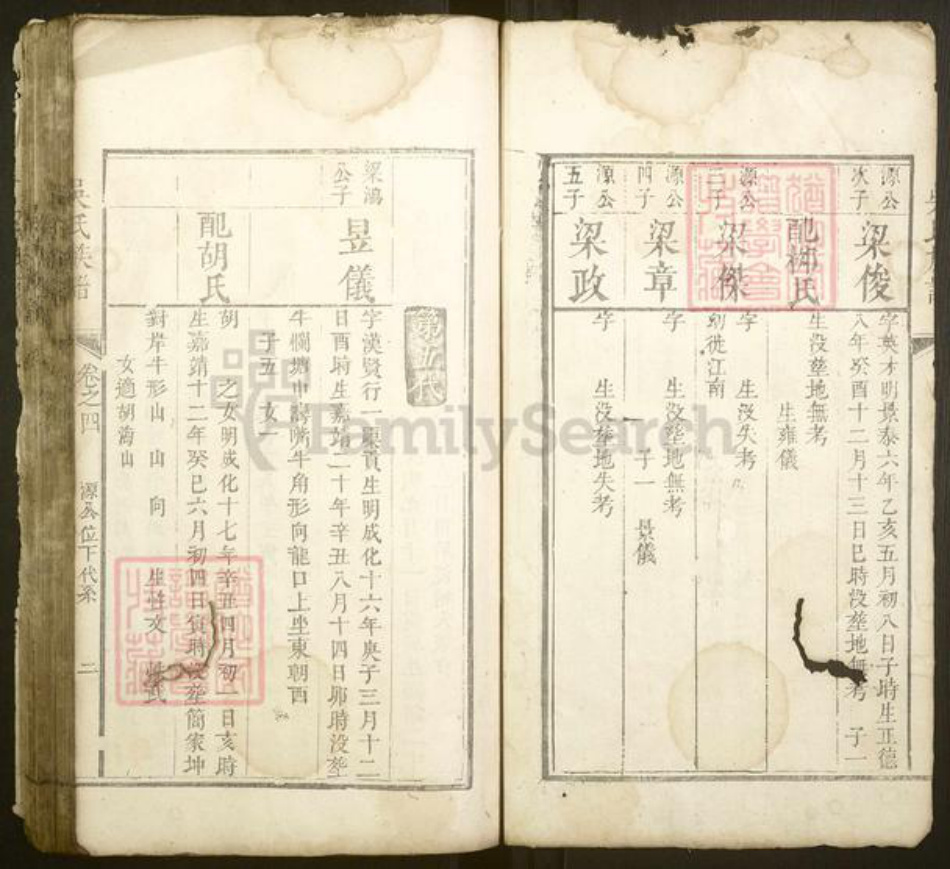 源公次子
梁俊
字英才明景泰六年乙亥五月初八日子時生正德
八年癸酉十二月十三日巳時没塟地無考 子一
配柳氏
生没塟地無考
生雍儀
源公三子
梁傑
字 生没失考
幼徙江南
源公四子
梁章
字 生没塟地無考
子一 景儀
源公五子
梁政
字 生没塟地失考
第五代
梁鴻公子
昱儀
字漢賢行一歲貢生明成化十六年庚子三月十二
日酉時生嘉靖二十年辛丑八月十四日卯時没塟
牛欄塘中 牛角形向龍口上坐東朝酉
子五 女一
配胡氏
胡 之女明成化十七年辛丑四月初一日亥時
生嘉靖十二年癸巳六月初四日寅時没塟簡家坤
對岸牛形山 山 向 生 文 氏
女適胡海山
吳氏族譜
卷之四
源公位下代系
二
FamilySearch